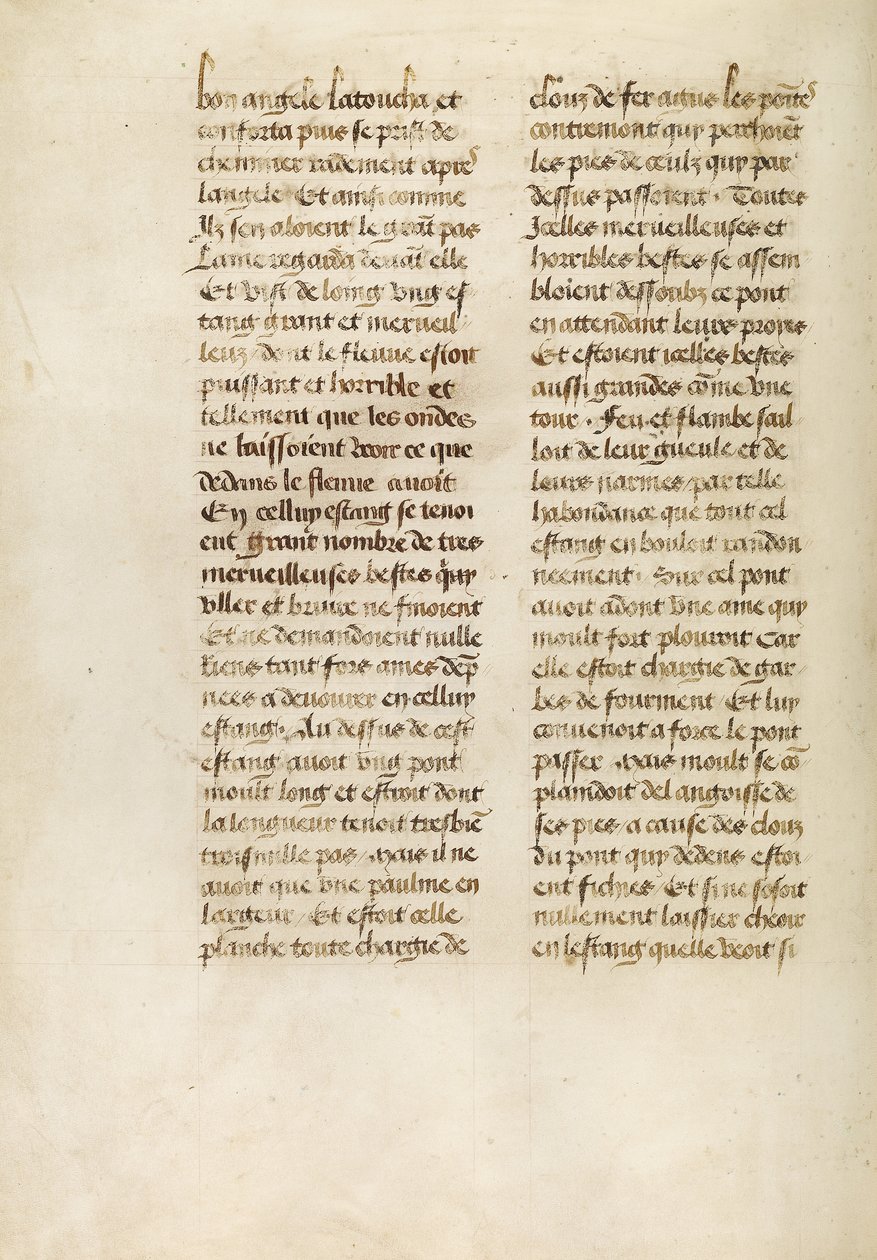 bon angele latoucha et
conforta puis se prist de
cheminer radement apres
langele Et ainsi comme
Ilz sen aloient le grāt pas
Lame regarda deuāt elle
Et vist de loing vng es-
tang grant et merueil-
leuz / dont le fleuue estoit
puissant et horrible et
tellement que les ondes
ne laissoient veoir ce que
dedans le fleuue auoit
En celluy estang se tenoi
ent grant nombre de tres
merueilleuses bestes quy
vller et bruire ne finoient
Et ne demandoient nulle
Riens tant fors ames dep̄
nees a deuourer en celluy
estang. Au dessus de cest
estang auoit vng pont
moult long et estroit dont
la longueur tenoit tresbiē
trois mille pas / mais il ne
auoit que vne paulme en
largeur / Et estoit celle
planche toute chargie de
clouz de fer agus les poītes
contremont quy perchoiēt
les pies de ceulz quy par
dessus passoient. Toutes
Icelles merueilleuses et
horribles bestes se assem
bloient dessoubz ce pont
en attendant leurs proyes /
Et estoient icelles bestes
aussi grandes cōme vne
tour. Feu et flambe sail
loit de leur gueule et de
leurs narines / par telle
habondance que tout cel
estang en bouloit randon-
neement. Sur cel pont
auoit adont vne ame quy
moult fort plouroit Car
elle estoit chargie de gar-
bes de fourment / Et luy
conuenoit a force le pont
passer. mais moult se cō-
plaindoit del angoisse de
ses pies / a cause des clouz
du pont quy dedens estoi-
ent fichies / Et si ne sosoit
nullement laissier cheoir
en lestang quelle veoit si